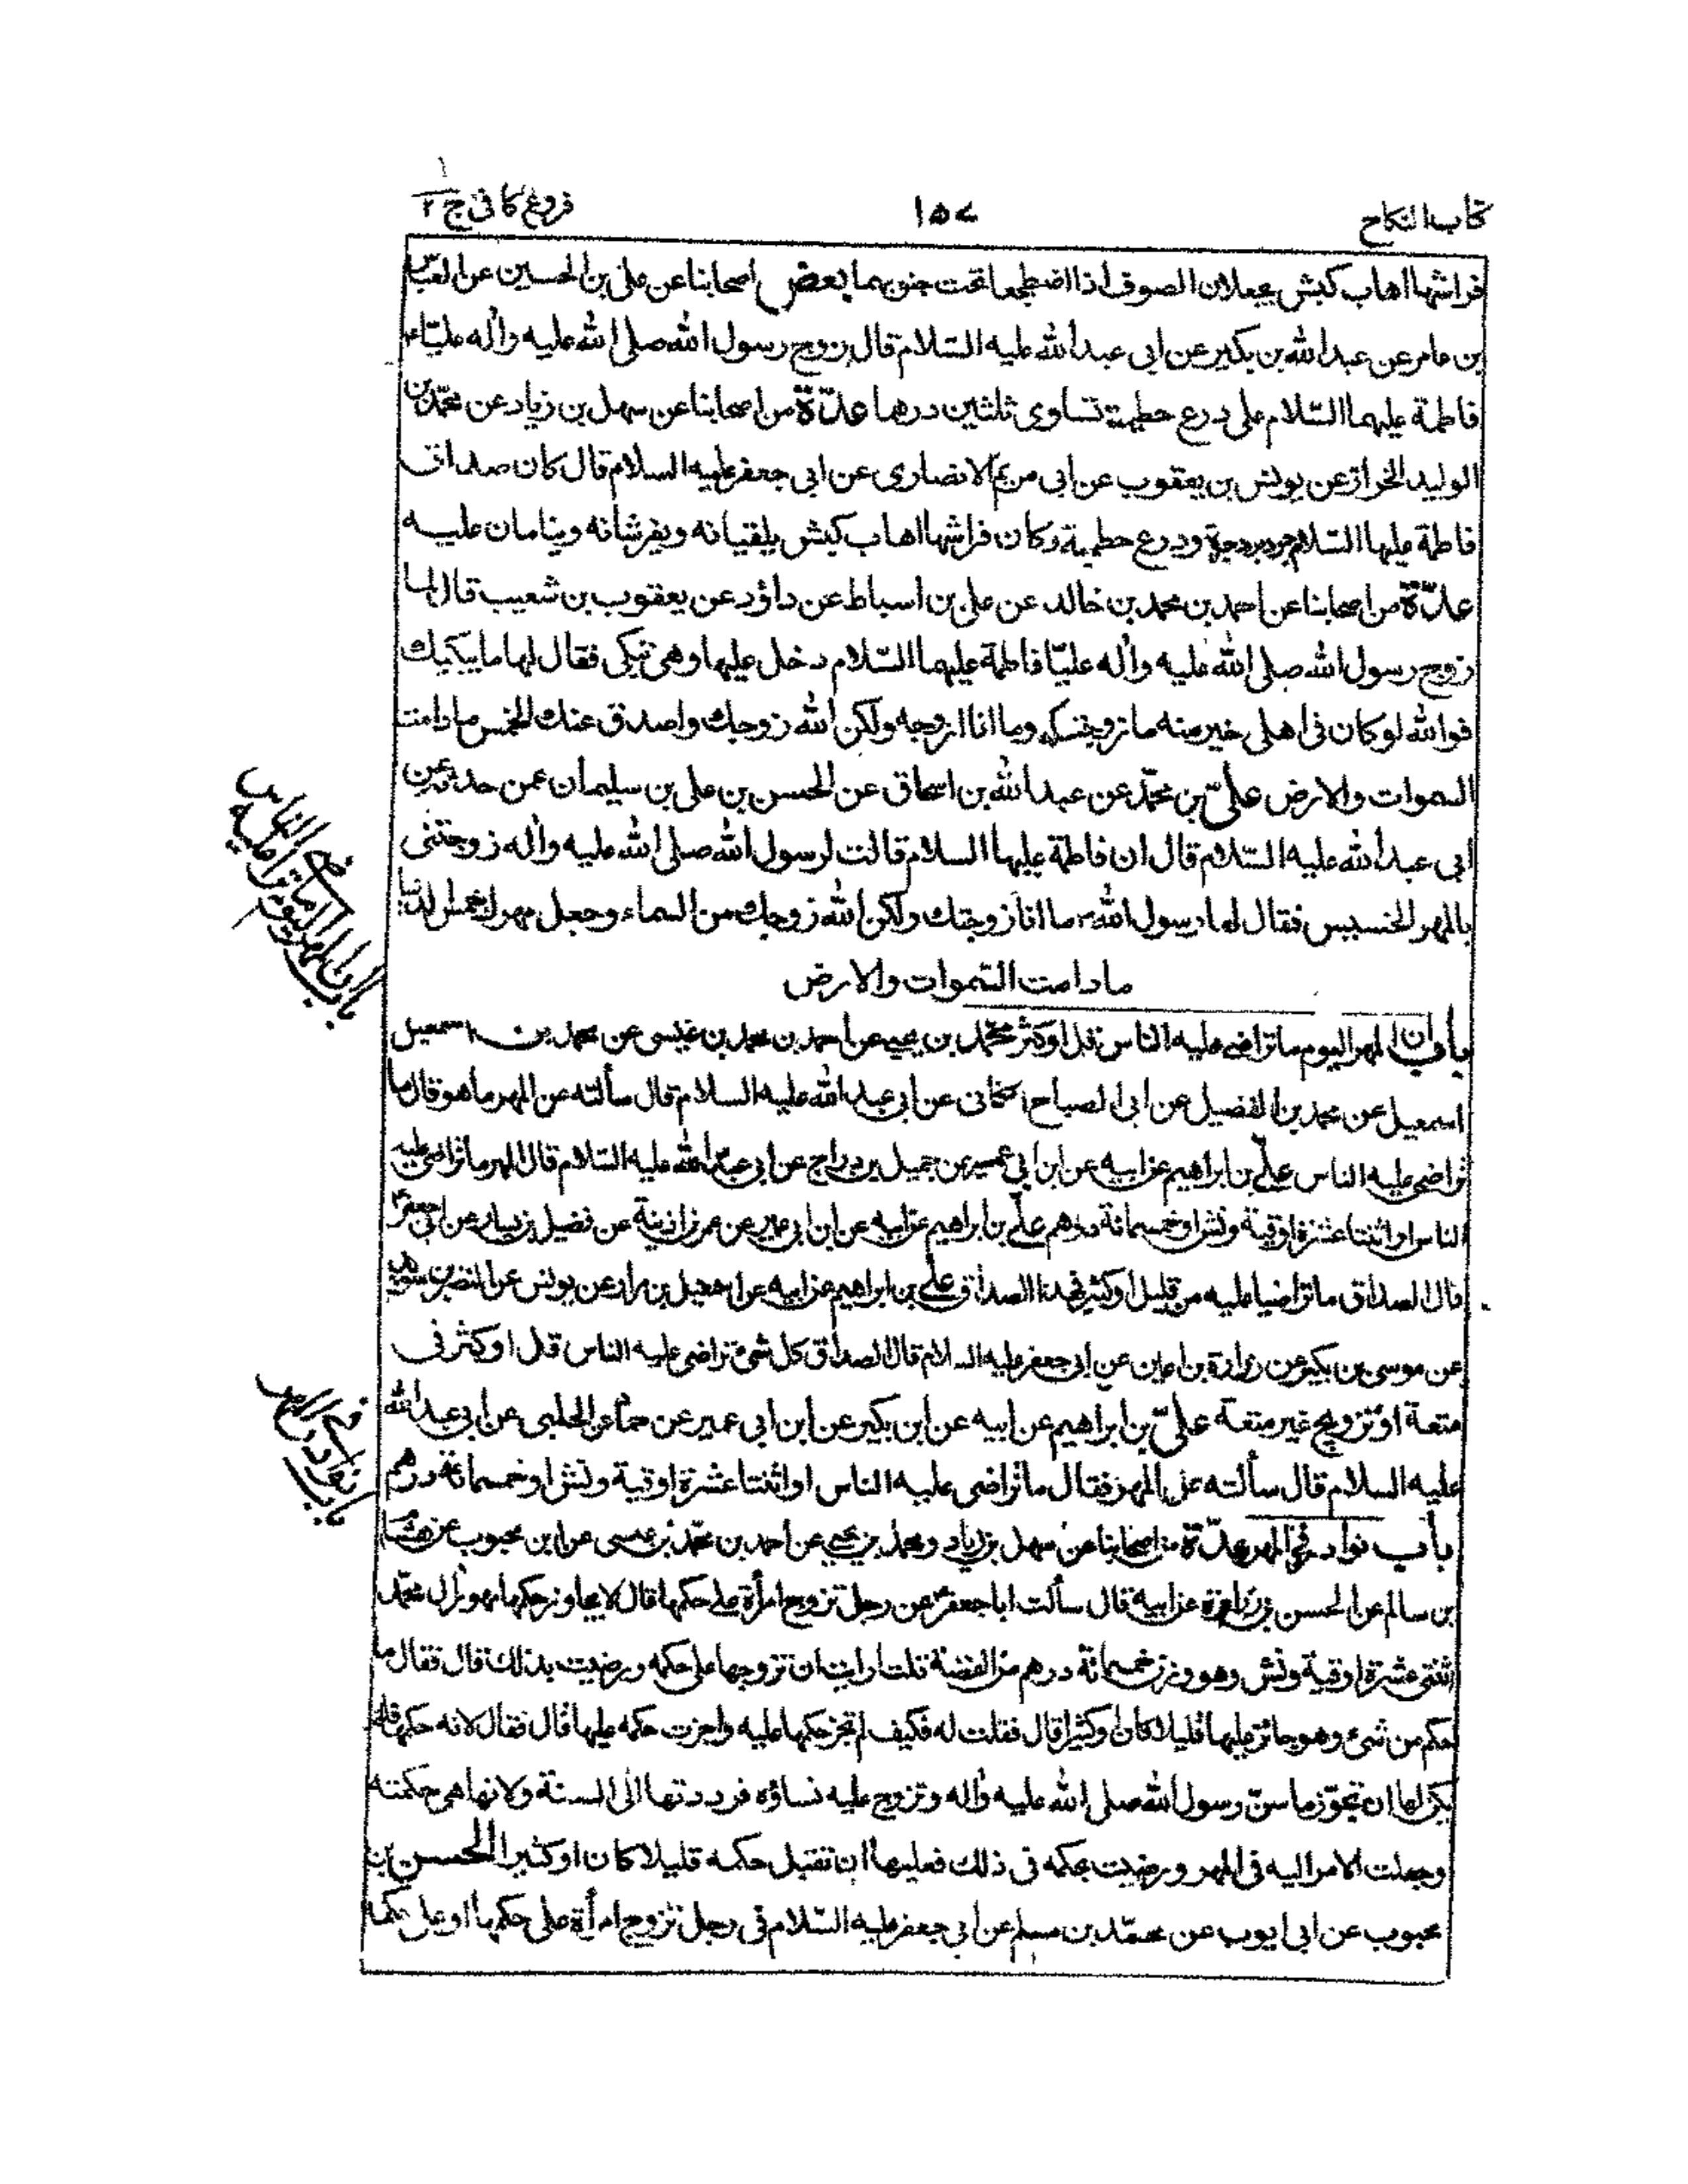 كتاب النكاح
١٥٧
فروع كافى ج ٢
فراشها اهاب كبش يجعلان الصوف اذا اضطجعا تحت جنوبهما بعض اصحابنا عن على بن الحسين عن العباس
بن عامر عن عبدالله بن بكير عن ابى عبدالله عليه السّلام قال زوج رسول الله صلى الله عليه واله عليّا
فاطمة عليهما السّلام على درع حطمية تساوى ثلثين درهما عدّة من اصحابنا عن سهل بن زياد عن محمّد بن
الوليد الخزاز عن يونس بن يعقوب عن ابى مريم الانصارى عن ابى جعفر عليه السلام قال كان صداق
فاطمة عليها السّلام جرد برد حبرة ودرع حطمية وكان فراشها اهاب كبش يلقيانه ويفرشانه وينامان عليه
عدّة من اصحابنا عن احمد بن محمد بن خالد عن على بن اسباط عن داؤد عن يعقوب بن شعيب قال لما
زوج رسول الله صلى الله عليه واله عليّا فاطمة عليهما السّلام دخل عليها وهى تبكى فقال لها ما يبكيك
فوالله لو كان فى اهلى خير منه ما زوجتكه وما انا ازوجه ولكن الله زوجك واصدق عنك الخمس ما دامت
السموات والارض علىّ بن محمّد عن عبدالله بن اسحاق عن الحسن بن على بن سليمان عمن حدثه عن
ابى عبدالله عليه السّلام قال ان فاطمة عليها السلام قالت لرسول الله صلى الله عليه واله زوجتنى
بالمهر الخسيس فقال لها رسول الله ما انا زوجتك ولكن الله زوجك من السماء وجعل مهرك خمس الدنيا
ما دامت السّموات والارض
باب ان المهر اليوم ما تراضى عليه الناس قل او كثر محمّد بن يحيى عن احمد بن محمد بن عيسى عن محمد بن اسمعيل
اسمعيل عن محمد بن الفضيل عن ابى الصباح الكنانى عن ابى عبدالله عليه السلام قال سألته عن المهر ما هو قال ما
تراضى عليه الناس علىّ بن ابراهيم عن ابيه عن ابن ابى عمير عن جميل بن دراج عن ابى عبدالله عليه السّلام قال المهر ما تراضى عليه
الناس او اثنتا عشرة اوقية ونش او خمسمائة درهم علىّ بن ابراهيم عن ابيه عن ابن ابى عمير عن عمر بن اذينة عن فضيل بن يسار عن ابى جعفر
قال الصداق ما تراضيا عليه من قليل او كثير فهذا الصداق علىّ بن ابراهيم عن ابيه عن اسمعيل بن مرار عن يونس عن النضر بن سويد
عن موسى بن بكير عن زرارة بن اعين عن ابى جعفر عليه السلام قال الصداق كل شىء تراضى عليه الناس قل او كثر فى
متعة او تزويج غير متعة علىّ بن ابراهيم عن ابيه عن ابن بكير عن ابن ابى عمير عن حماد عن الحلبى عن ابى عبدالله
عليه السلام قال سألته عن المهر فقال ما تراضى عليه الناس او اثنتا عشرة اوقية ونش او خمسمائة درهم
باب نوادر فى المهر عدّة من اصحابنا عن سهل بن زياد ومحمد بن يحيى عن احمد بن محمّد بن عيسى عن ابن محبوب عن هشام
بن سالم عن الحسن بن زرارة عن ابيه قال سألت ابا جعفر عن رجل تزوج امرأة على حكمها قال لا يجاوز حكمها مهور ال محمّد
اثنتى عشرة اوقية ونش وهو وزن خمسمائة درهم من الفضة قلت ارايت ان تزوجها على حكمه ورضيت بذلك قال فقال ما
حكم من شىء وهو جائز عليها قليلا كان او كثيرا قال فقلت له فكيف لم تجز حكمها عليه واجزت حكمه عليها قال فقال لانه حكمها فلم
يكن لها ان تجوّز ما سنّ رسول الله صلى الله عليه واله وتزوج عليه نساؤه فرددتها الى السنة ولانها هى حكمته
وجعلت الامر اليه فى المهر ورضيت بحكمه فى ذلك فعليها ان تقبل حكمه قليلا كان او كثيرا الحسن بن
محبوب عن ابى ايوب عن محمّد بن مسلم عن ابى جعفر عليه السّلام فى رجل تزوج امرأة على حكمها او على حكمه